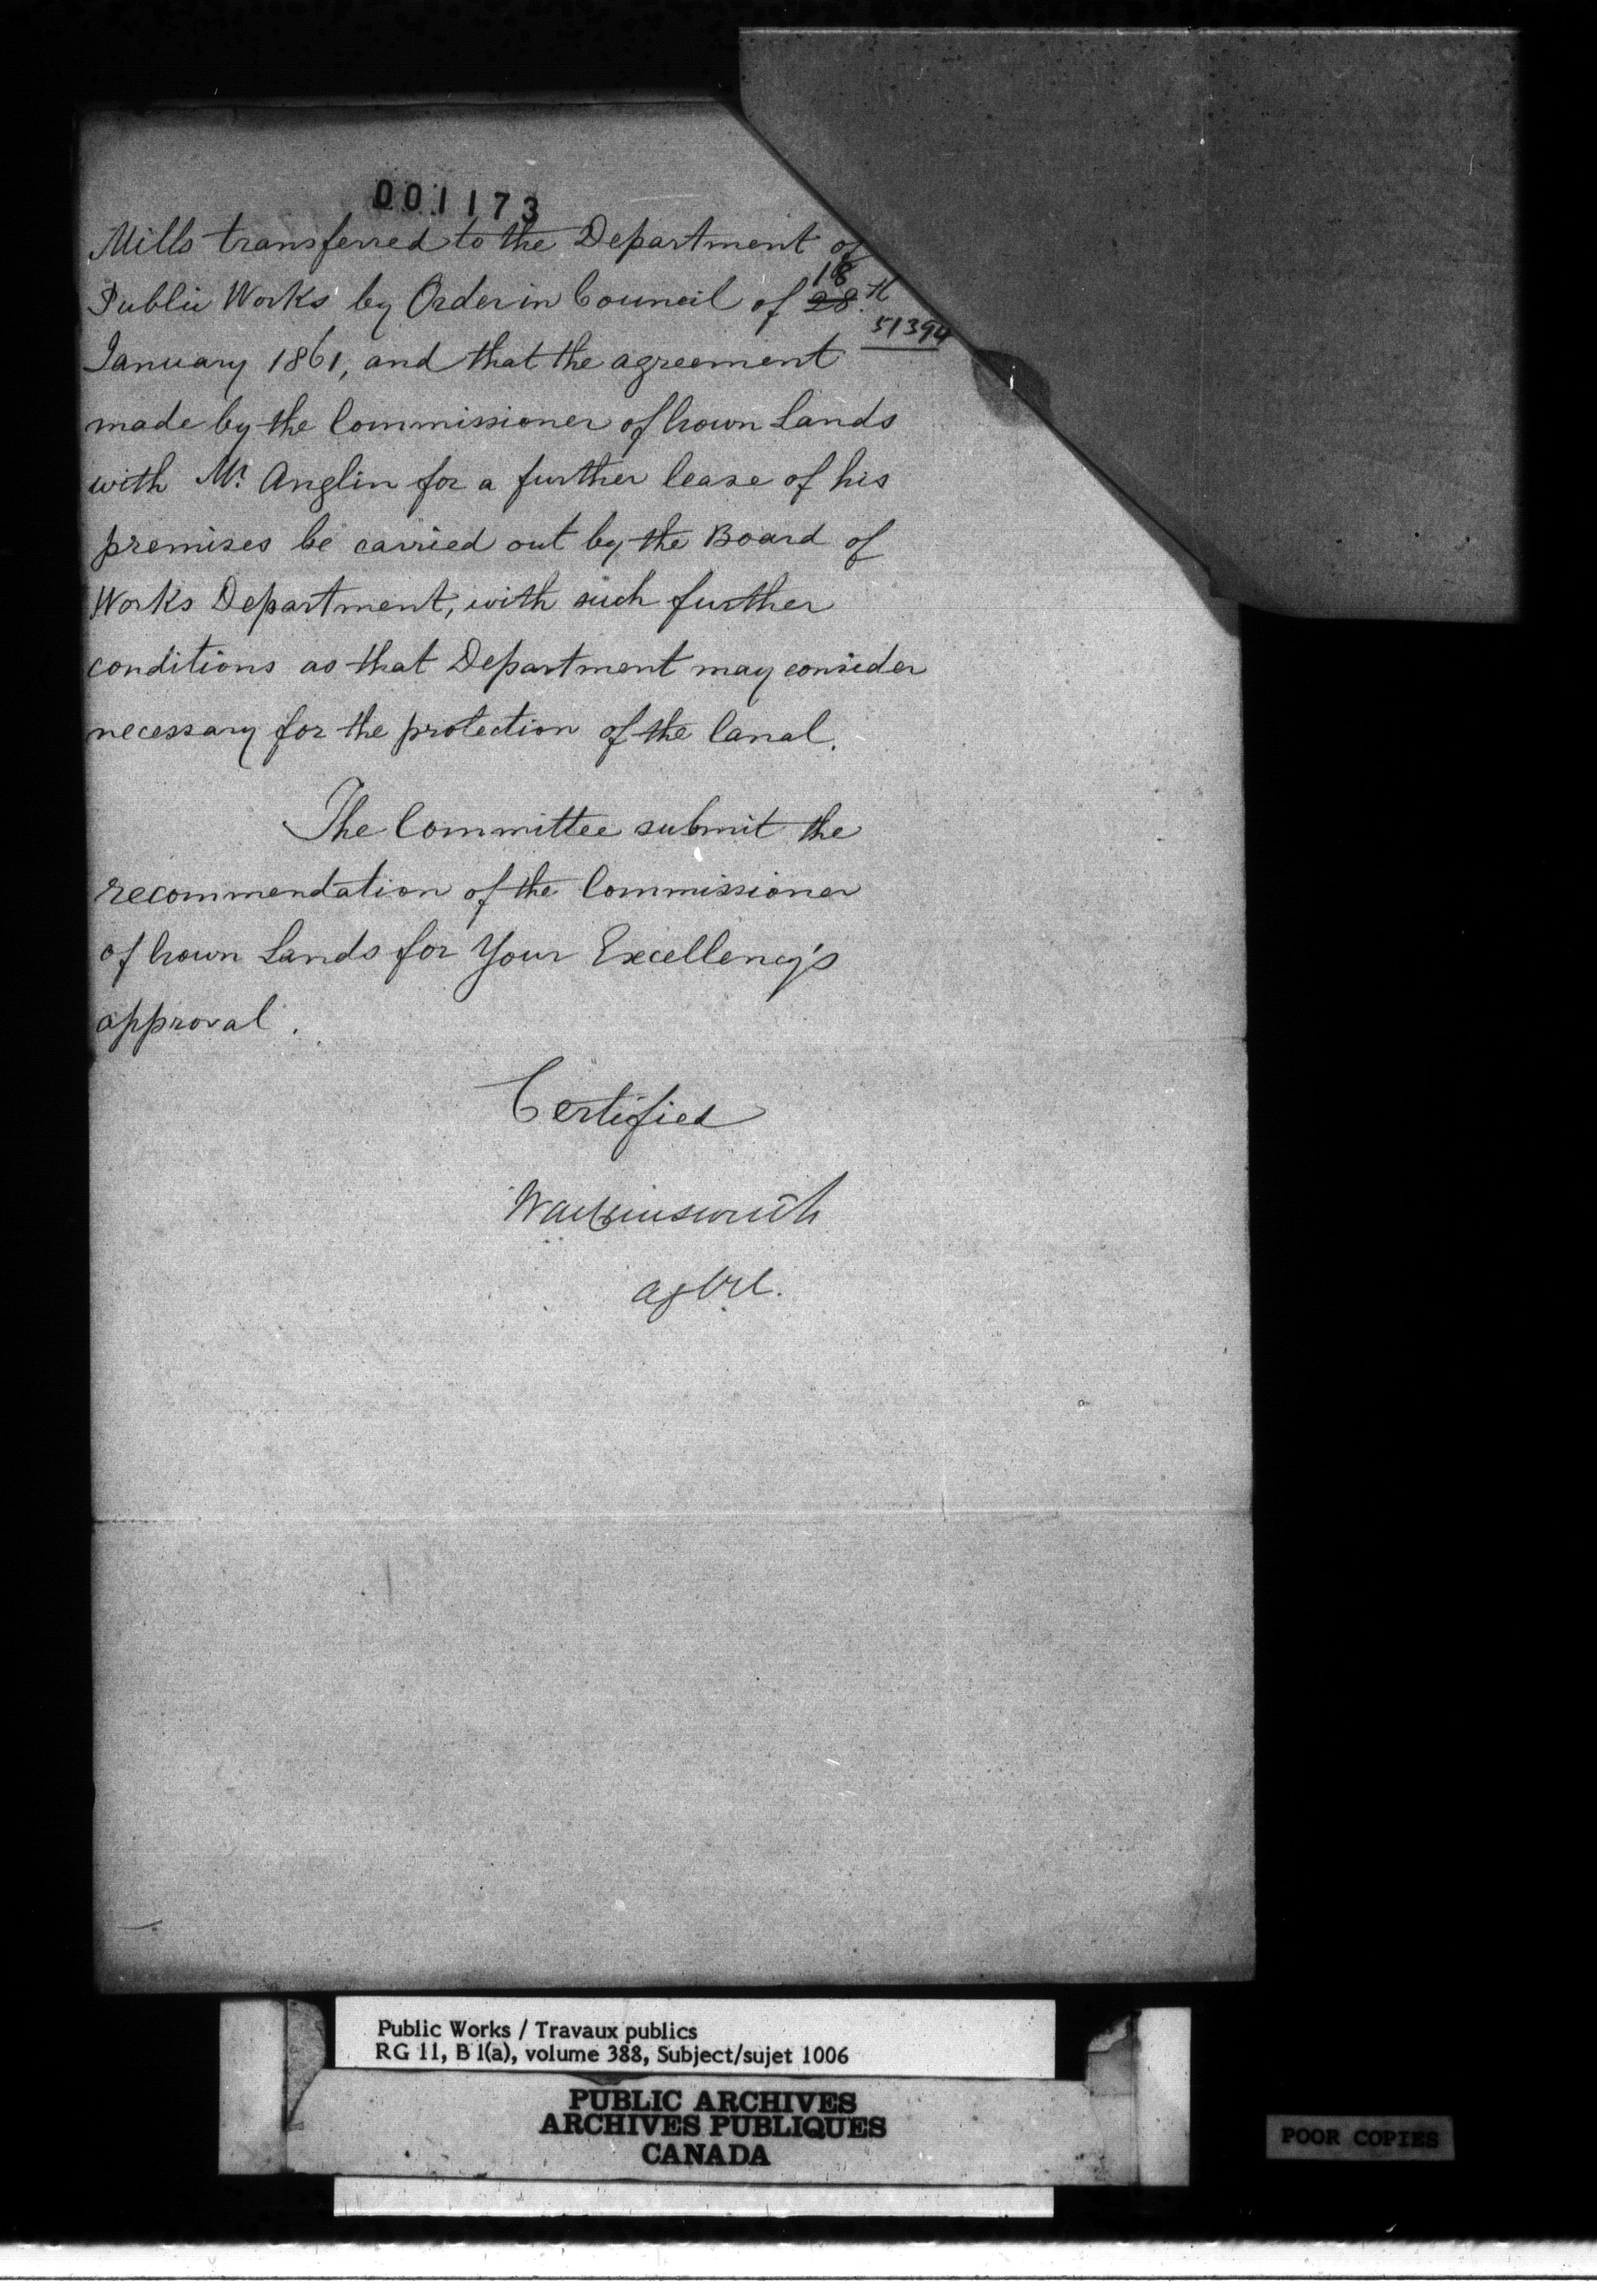 001173
Mills transferred to the Department of
Public Works by Order in Council of 28 18th
51394
January 1861, and that the agreement
made by the Commissioner of Crown Lands
with Mr. Anglin for a further lease of his
premises be carried out by the Board of
Works Department, with such further
conditions as that Department may consider
necessary for the protection of the Canal.
The Committee submit the
recommendation of the Commissioner
of Crown Lands for Your Excellency's
approval.
Certified
Public Works / Travaux publics
RG 11, B 1(a), volume 388, Subject/sujet 1006
PUBLIC ARCHIVES
ARCHIVES PUBLIQUES
CANADA
POOR COPIES